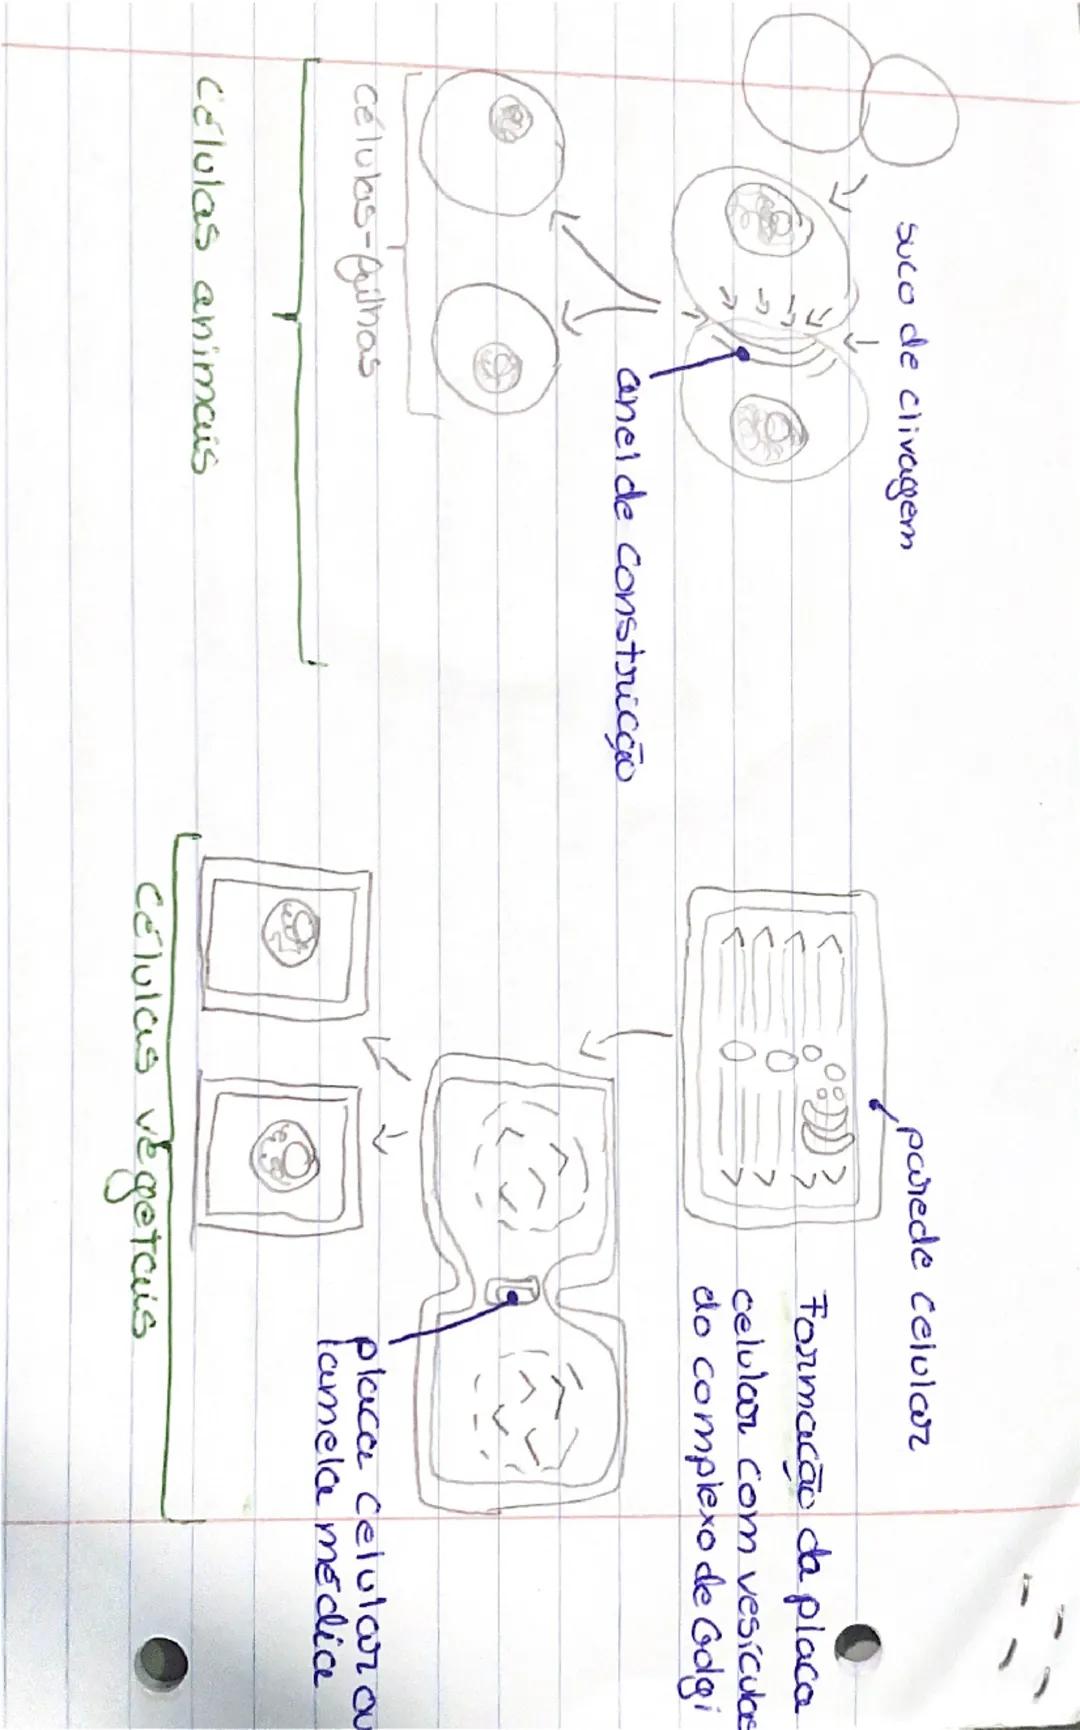 suco de clivagem
anel de constricção
células-filhas
Células animais
parede celular
Formação da placa
celular com vesículas
do complexo de Golgi
placa celular ou
lamela média
Células vegetais